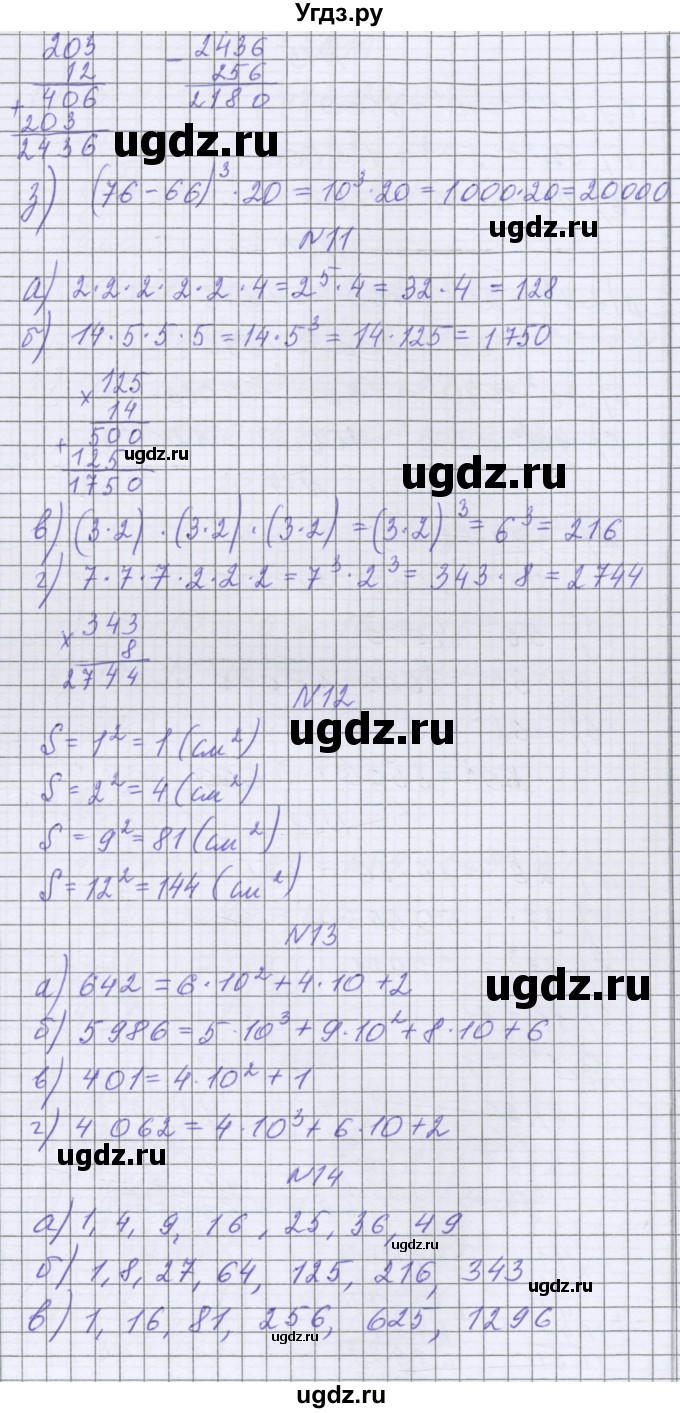 Угдз.ру
203
12
406
+ 203
2436
- 2436
256
2180
ugdz.ru
з) (76-66)³·20=10³·20=1000·20=20000
ugdz.ru
N11
а) 2·2·2·2·2·4=2⁵·4=32·4=128
б) 14·5·5·5=14·5³=14·125=1750
× 125
14
500
+ 125
1750
ugdz.ru
ugdz.ru
в) (3·2)·(3·2)·(3·2)=(3·2)³=6³=216
г) 7·7·7·2·2·2=7³·2³=343·8=2744
× 343
8
2744
N12
ugdz.ru
S=1²=1(см²)
S=2²=4(см²)
S=9²=81(см²)
S=12²=144(см²)
N13
а) 642=6·10²+4·10+2
ugdz.ru
б) 5986=5·10³+9·10²+8·10+6
в) 401=4·10²+1
г) 4 062=4·10³+6·10+2
ugdz.ru
N14
а) 1, 4, 9, 16, 25, 36, 49
ugdz.ru
б) 1, 8, 27, 64, 125, 216, 343
ugdz.ru
в) 1, 16, 81, 256, 625, 1296
ugdz.ru
ugdz.ru